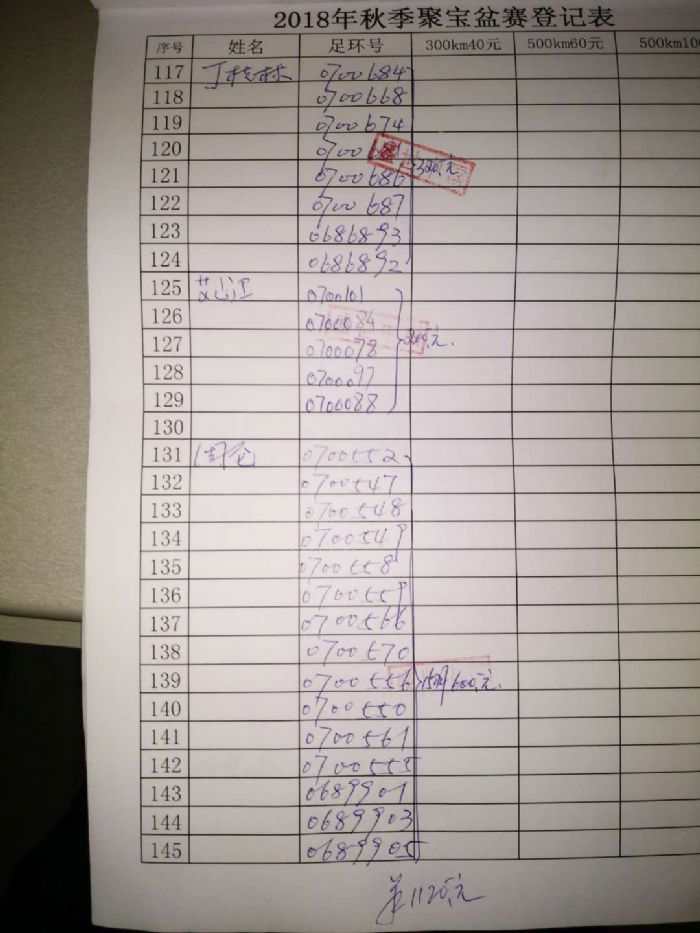 2018年秋季聚宝盆赛登记表
序号 姓名 足环号 300km40元 500km60元 500km10
117 丁桂林 0700684
118 0700668
119 0700674
120 0700
121 0700686 320元
122 0700687
123 0686893
124 0686892
125 艾山江 0700101
126 0700084
127 0700078 200元.
128 0700097
129 0700088
130
131 周龙 0700552
132 0700547
133 0700548
134 0700549
135 0700558
136 0700559
137 0700566
138 0700570
139 0700556 15羽600元.
140 0700550
141 0700561
142 0700555
143 0689901
144 0689903
145 0689905
1120元